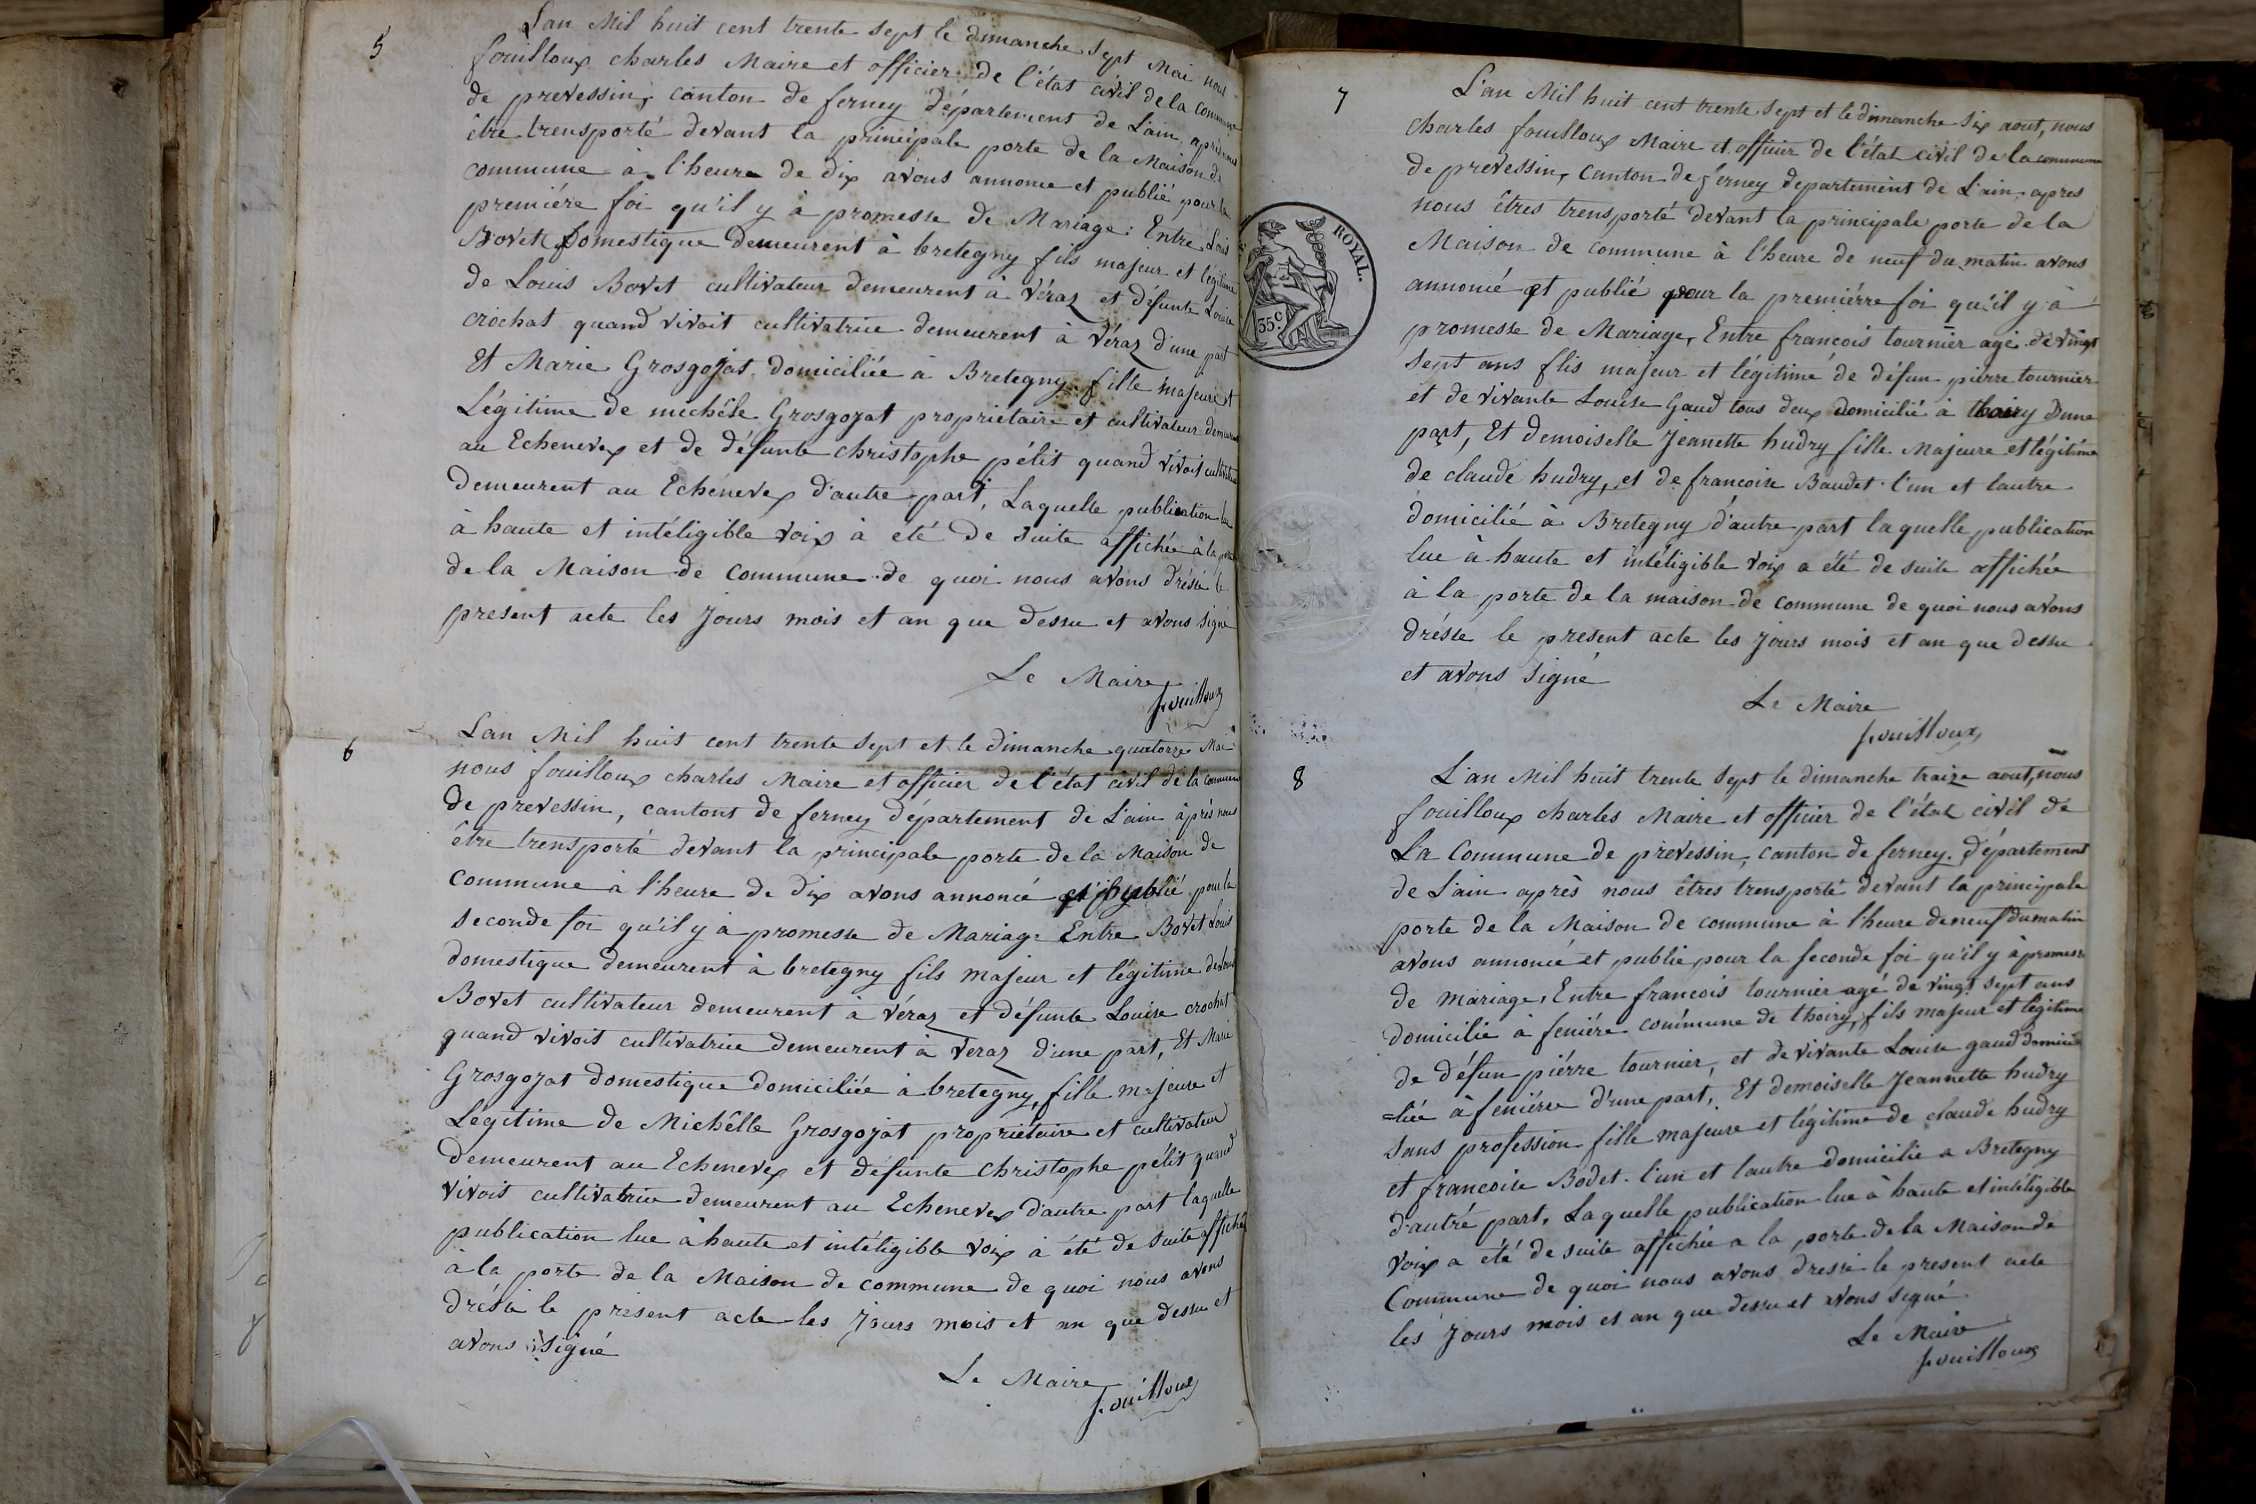 5
L'an Mil huit cent trente sept le dimanche sept Mai nous
fouilloux charles Maire et officier de l'état civil de la commune
de prevessin, canton de ferney département de L'ain, après nous
être trensporté devant la principale porte de la Maison de
commune à l'heure de dix avons annonce et publié pour la
première foi qu'il y à promesse de Mariage: Entre Louis
Bovet Domestique demeurent à bretegny fils majeur et légitime
de Louis Bovet cultivateur demeurent à Véraz et défunte Louise
crochat quand vivoit cultivatrice demeurent à Véraz d'une part
Et Marie Grosgojat domiciliée à Bretegny fille majeure et
Légitime de michêle Grosgojat propriétaire et cultivateur demeurent
au Echenevex et de défunte christophe pétit quand vivoit cultivatrice
demeurent au Echenevex d'autre part, Laquelle publication lue
à haute et intéligible voix à eté de suite affichée à la porte
de la Maison de commune de quoi nous avons drésse le
present acte les jours mois et an que dessu et avons signé
Le Maire
fouilloux
6
L'an Mil huit cent trente sept et le dimanche quatorze Mai
nous fouilloux charles Maire et officier de l'état civil de la commune
de prevessin, cantont de ferney département de L'ain après nous
être trensporté devant la principale porte de la Maison de
commune à l'heure de dix avons annoncé et publié pour la
seconde foi qu'il y à promesse de Mariage Entre Bovet Louis
domestique demeurent à bretegny fils majeur et légitime de Louis
Bovet cultivateur demeurent à Véraz et défunte Louise crochat
quand vivoit cultivatrice demeurent à Veraz d'une part, Et Marie
Grosgojat domestique domiciliée à bretegny, fille majeure et
Légitime de Michêlle Grosgojat propriétaire et cultivateur
demeurent au Echenevex et défunte christophe pétit quand
vivoit cultivatrice demeurent au Echenevex d'autre part laquelle
publication lue à haute et intéligible voix à été de suite affichée
à la porte de la Maison de commune de quoi nous avons
drésse le présent acte les jours mois et an que dessu et
avons signé
Le Maire
fouilloux
ROYAL.
35.c
7
L'an Mil huit cent trente sept et le dimanche six aout, nous
charles fouilloux Maire et officier de l'état civil de la commune
de prevessin, canton de ferney departement de L'ain apres
nous êtres trensporté devant la principale porte de la
Maison de commune à l'heure de neuf du matin avons
annoncé et publié pour la premiérre foi qu'il y à
promesse de Mariage, Entre francois tournier agé de vingt
sept ans flis majeur et légitime de défun pierre tournier
et de vivante Louise Gaud tous deux domicilié à thoiry Dune
part, Et demoiselle Jeanette hudry fille Majeure et légitime
de claude hudry, et de francoise Baudet l'un et lautre
domicilié à Bretegny d'autre part laquelle publication
lue à haute et intéligible voix a été de suite affichée
à la porte de la maison de commune de quoi nous avons
dréssé le present acte les jours mois et an que dessu
et avons signé
Le Maire
fouilloux
8
L'an Mil huit trente sept le dimanche traize aout, nous
fouilloux charles Maire et officier de l'état civil de
La Commune de prevessin, canton de ferney. département
de L'ain après nous êtres trensporté devant la principale
porte de la Maison de commune à l'heure de neuf du matin
avons annoncé et publié pour la seconde foi qu'il y à promesse
de mariage, Entre francois tournier agé de vingt sept ans
domicilie à feniére commune de thoiry, fils majeur et légitime
de défun piérre tournier, et de vivante Louise gaud domici
=liée à feniére d'une part, Et demoiselle Jeannette hudry
sans profession fille majeure et légitime de claude hudry
et francoise Bodet l'un et lautre domicilié a Bretegny
d'autré part, Laquelle publication lue à haute et intéligible
voix a été de suite affichée a la porte de la Maison de
Commune de quoi nous avons dressé le present acte
les jours mois et an que dessu et avons signé
Le Maire
fouilloux